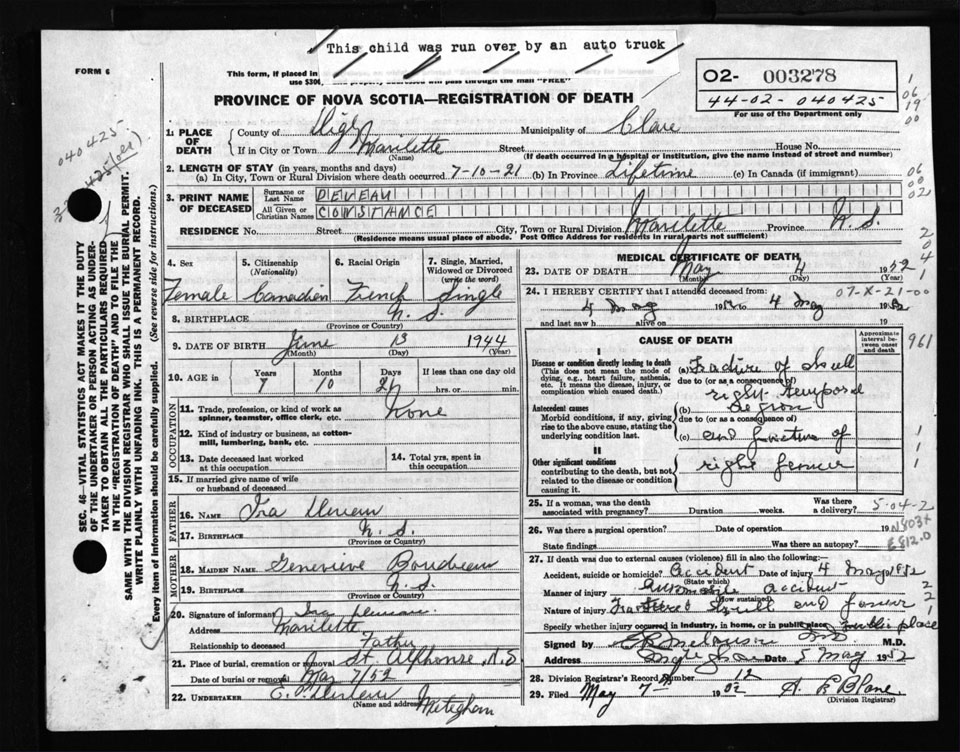 This child was run over by an auto truck
FORM 6
This form, if placed in
PROVINCE OF NOVA SCOTIA—REGISTRATION OF DEATH
O2- 003278
44-02-040425
For use of the Department only
1: PLACE OF DEATH
County of Digby
Municipality of Clare
If in City or Town Mavilette (Name) Street House No.
(If death occurred in a hospital or institution, give the name instead of street and number)
2. LENGTH OF STAY (in years, months and days)
(a) In City, Town or Rural Division where death occurred 7-10-21 (b) In Province Lifetime (c) In Canada (if immigrant)
3. PRINT NAME OF DECEASED
Surname or Last Name DEVEAU
All Given or Christian Names CONSTANCE
RESIDENCE No. Street City, Town or Rural Division Mavilette Province N.S.
(Residence means usual place of abode. Post Office Address for residents in rural parts not sufficient)
4. Sex Female
5. Citizenship (Nationality) Canadian
6. Racial Origin French
7. Single, Married, Widowed or Divorced (write the word) Single
8. BIRTHPLACE N.S.
(Province or Country)
9. DATE OF BIRTH June 13 1944
(Month) (Day) (Year)
10. AGE in Years 7 Months 10 Days 21 If less than one day old hrs. or min.
OCCUPATION
11. Trade, profession, or kind of work as spinner, teamster, office clerk, etc. None
12. Kind of industry or business, as cotton-mill, lumbering, bank, etc.
13. Date deceased last worked at this occupation
14. Total yrs. spent in this occupation
15. If married give name of wife or husband of deceased
FATHER
16. NAME Ira Deveau
17. BIRTHPLACE N.S.
(Province or Country)
MOTHER
18. MAIDEN NAME Genevieve Boudreau
19. BIRTHPLACE N.S.
(Province or Country)
20. Signature of informant Ira Deveau
Address Mavilette
Relationship to deceased Father
21. Place of burial, cremation or removal St. Alphonse, N.S
Date of burial or removal May 7/52
22. UNDERTAKER Deveau
(Name and address) Meteghan
MEDICAL CERTIFICATE OF DEATH
23. DATE OF DEATH May 4 1952
(Month) (Day) (Year)
24. I HEREBY CERTIFY that I attended deceased from:
4 May 1952 to 4 May 1952
07-X-21-00
and last saw h alive on 19
CAUSE OF DEATH
Approximate interval between onset and death
I
Disease or condition directly leading to death
(This does not mean the mode of dying, e.g., heart failure, asthenia, etc. It means the disease, injury, or complication which caused death.)
(a) Fracture of Skull
due to (or as a consequence of)
right temporal
(b) Region
due to (or as a consequence of)
(c) and fracture of
right femur
Antecedent causes
Morbid conditions, if any, giving rise to the above cause, stating the underlying condition last.
II
Other significant conditions
contributing to the death, but not related to the disease or condition causing it.
961
25. If a woman, was the death associated with pregnancy? Duration weeks. Was there a delivery?
5-04-2
26. Was there a surgical operation? Date of operation 19
N803X
State findings Was there an autopsy?
E812.0
27. If death was due to external causes (violence) fill in also the following:
Accident, suicide or homicide? Accident Date of injury 4 May 1952
(State which)
Manner of injury Automobile accident
(How sustained)
Nature of injury Fractured Skull and femur
Specify whether injury occurred in industry, in home, or in public place public place
Signed by M.D.
Address Date 5 May 1952
28. Division Registrar's Record Number 12
29. Filed May 7th 1952
(Division Registrar)
SEC. 46—VITAL STATISTICS ACT MAKES IT THE DUTY OF THE UNDERTAKER OR PERSON ACTING AS UNDERTAKER TO OBTAIN ALL THE PARTICULARS REQUIRED IN THE "REGISTRATION OF DEATH" AND TO FILE THE SAME WITH THE DIVISION REGISTRAR WHO SHALL ISSUE THE BURIAL PERMIT.
WRITE PLAINLY WITH UNFADING INK. THIS IS A PERMANENT RECORD.
Every item of information should be carefully supplied. (See reverse side for instructions.)
040425